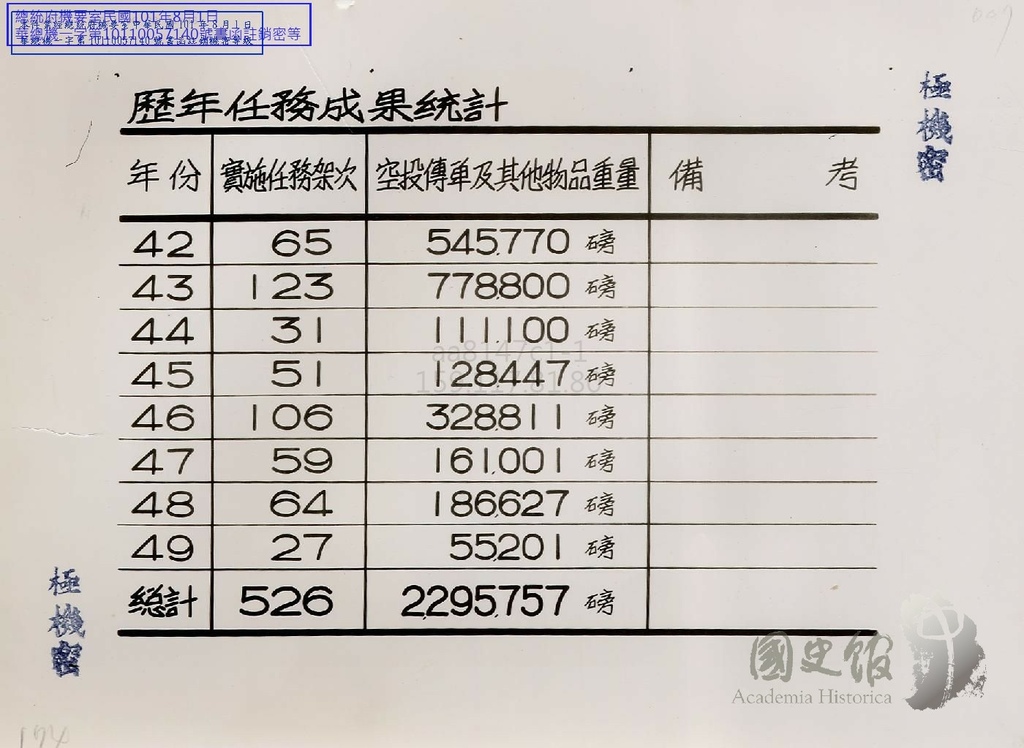 總統府機要室民國101年8月1日
華總機一字第10110057140號書函註銷密等
極機密
歷年任務成果統計
年份 實施任務架次 空投傳单及其他物品重量 備考
42 65 545,770 磅
43 123 778,800 磅
44 31 111,100 磅
45 51 128,447 磅
46 106 328,811 磅
47 59 161,001 磅
48 64 186,627 磅
49 27 55,201 磅
總計 526 2,295,757 磅
極機密
國史館
Academia Historica
174